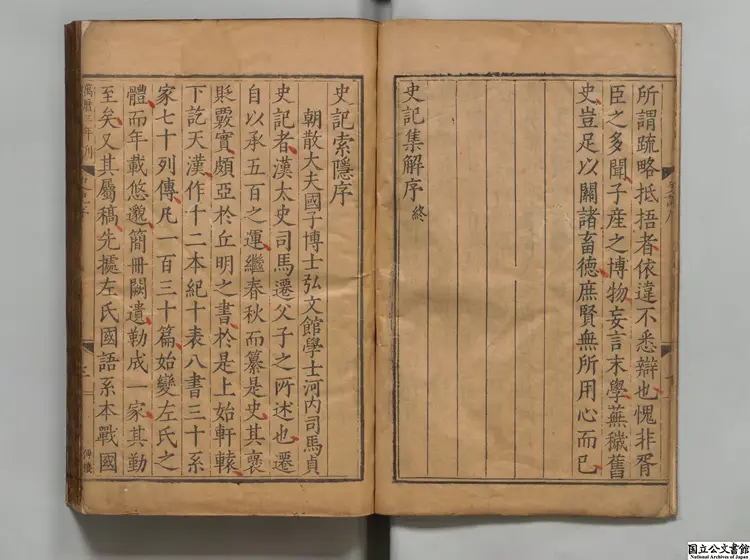 所謂疏略抵捂者依違不悉辯也愧非胥
臣之多聞子産之博物妄言末學蕪穢舊
史豈足以關諸畜德庶賢無所用心而已
史記集解序 終
史記索隱序
朝散大夫國子博士弘文館學士河内司馬貞
史記者漢太史司馬遷父子之所述也遷
自以承五百之運繼春秋而纂是史其襃
貶覈實頗亞於丘明之書於是上始軒轅
下訖天漢作十二本紀十表八書三十系
家七十列傳凡一百三十篇始變左氏之
體而年載悠邈簡冊闕遺勒成一家其勤
至矣又其屬稿先據左氏國語系本戰國
萬曆三年刊
三
国立公文書館
National Archives of Japan